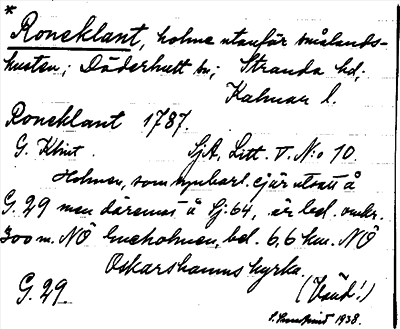 *
Roneklant, holme utanför smålands-
kusten; Döderhult sn; Stranda hd;
Kalmar l.
Roneklant 1787.
G. Klint. SjA, Litt. V. N:o 10.
Holmen, som synbarl. ej är utsatt å
G. 29 men däremot å Sj: 64, är bel. omkr.
300 m. NÖ holmen, bel. 6,6 km. NÖ
Oskarshamns kyrka.
G. 29. (Vänd!)
1938.